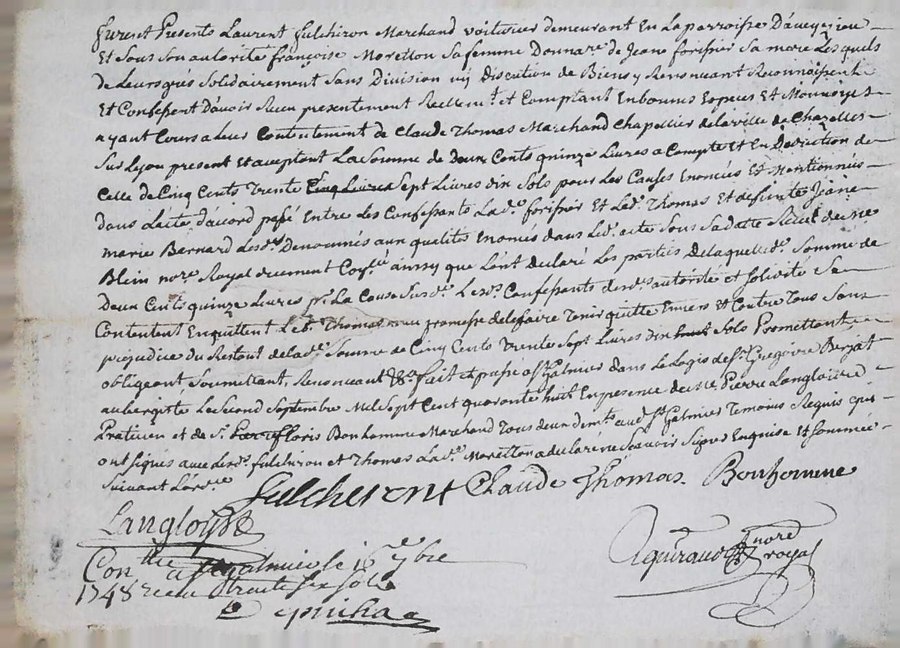 furent Presents Laurent fulchiron Marchand voiturier demeurant En La parroisse D'aveyzieu
Et Sous Son autorité françoise Moretton Sa femme Donnare. de Jeane forissier Sa mere Lesquels
de Leurs grés Solidairement Sans Division ny Discution de Biens y Renonceant Reconnoissent
Et Confessent D'avoir Receu presentement Reellemt. et Comptant En bonnes Especes Et Monnoyes
ayant Cours a Leur Contentement de Claude Thomas Marchand Chapellier de la ville de Chazelles
Sur Lyon present Et acceptant La Somme de deux Cents quinze Livres a Compte Et En Deduction de
Celle de Cinq Cents Trente Sept Livres dix Sols pour Les Causes Enoncées Et Mentionnées
dans L'acte d'accord passé Entre Les Confessants La de. forissier Et Led. Thomas Et deffunte Jeane
marie Bernard Lesds. Denommés aux qualités Enoncés dans Led. acte Sous Sa datte Receu de Me
Blein nore. Royal ainsy que L'ont declaré Les parties De laquelle de. Somme de
Deux Cents quinze Livres pr. La Cause Susde. Lesds. Confessants desd. autorité et Solidité Se
Contentent En quittent Led. Thomas avec promesse de le faire Tenir quitte Envers Et Contre Tous Sans
prejudice du Restant de lade. Somme de Cinq Cents Trente Sept Livres dix Sols Promettant
obligeant Soumettant, Renonceant &a fait et passé a St Galmier dans Le Logis de Sr. Gregoire Berjat
aubergiste Le Second Septembre Mil Sept Cent quarante huit En presence de Me Pierre Langloisse
Praticien et de Sr. floris Bonhomme Marchand Tous deux demts. aud. St Galmier Temoins Requis qui
ont signés avec Lesds. fulchiron et Thomas La de. Moretton a declaré ne Scavoir Signer Enquise Et Sommée
Suivant L'ordce
fulchiront Claude Thomas Bonhomme
Langloisse
nore royal
Conlle a St galmier le 16e 7bre
1748 receu Trente six sols